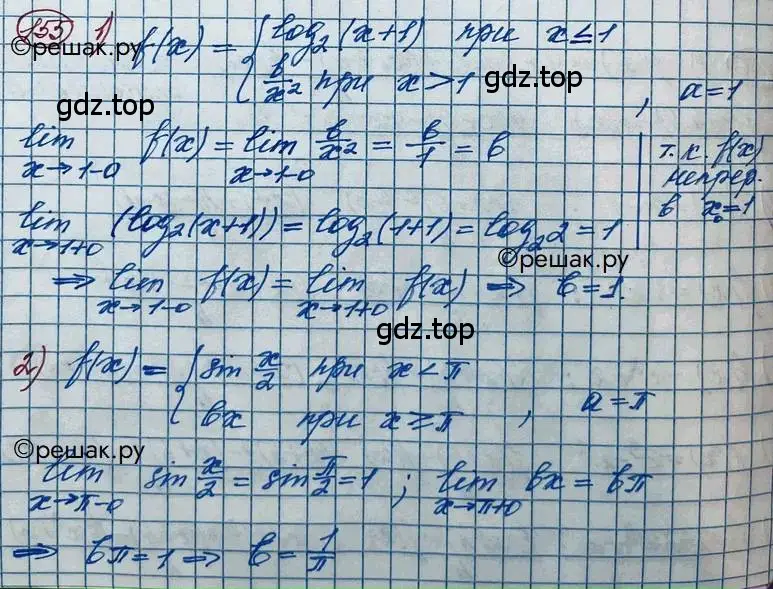 155 1) f(x) = { log₂(x+1) при x ≤ 1
b/x² при x > 1 , a = 1
©решак.ру
gdz.top
©решак.ру
gdz.top
lim x→1-0 f(x) = lim x→1-0 b/x² = b/1 = b | т.к. f(x) непрер. в x₀=1
lim x→1+0 (log₂(x+1)) = log₂(1+1) = log₂2 = 1
©решак.ру
⇒ lim x→1-0 f(x) = lim x→1+0 f(x) ⇒ b = 1.
gdz.top
2) f(x) = { sin x/2 при x < π
bx при x ≥ π , a = π
©решак.ру
lim x→π-0 sin x/2 = sin π/2 = 1 ; lim x→π+0 bx = bπ
⇒ bπ = 1 ⇒ b = 1/π